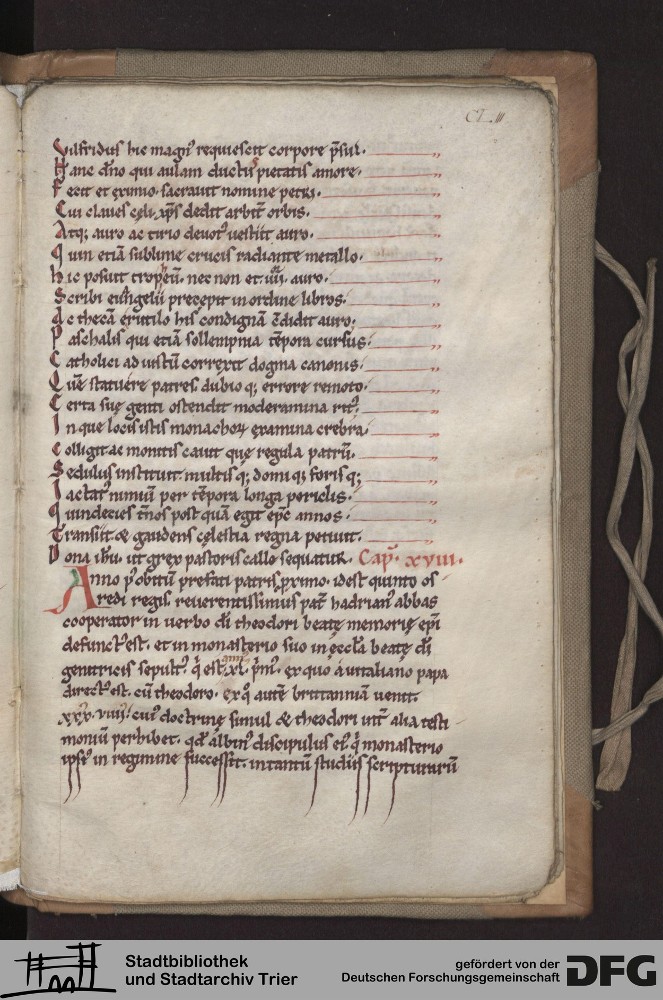 CLIII
Vilfridus hic magn᾽ requiescit corpore p̄sul.
Hanc dn̄o qui aulam ductus pietatis amore.
Fecit et eximio. sacrauit nomine petri.
Cui claues cęli xp̄s dedit arbit̄ orbis.
Atq; auro ac tirio deuot᾽ uestiit auro.
Quin etiā sublime crucis radiante metallo.
hic posuit tropeū. nec non et. iiii. auro.
Scribi euḡlii precepit in ordine libros.
Ac thecā e rutilo his condignā c̄didit auro;
Paschalis qui etiā sollempnia tēpora cursus.
Catholici ad iustū correxit dogma canonis.
Quē statuere patres dubio q; errore remoto.
Certa suę genti ostendit moderamina rit᾽.
In que locis istis monachoꝝ examina crebra.
Colligit ac monitis cauit que regula patrū.
Sedulus instituit. multis q; domi q; foris q;
Iactat᾽ nimiū per tēpora longa periclis.
Quindecies t̄nos post quā egit ep̄c annos.
Transiit & gaudens cęlestia regna petiuit.
Dona ih̄u. ut grex pastoris calle sequatur. Cap̄. xviii.
Anno p᾽ obitū prefati patris ꝓximo. id est quinto os
redi regis. reuerentissimus pat̄ hadrian᾽ abbas
cooperator in uerbo dī theodori beatę memorię ep̄i
defunct᾽ est. et in monasterio suo in ęccl̄a beatę dī
genitricis sepult᾽. q̄ est. xl. p̄m᾽. ex quo a uitaliano papa
direct᾽ est. cū theodoro. ex q᾽ autē brittanniā uenit.
xxx. viiii. cui᾽ doctrinę simul & theodori int̄ alia testi
moniū perhibet. qd̄ albin᾽ discipulus ei᾽. q̄ monasterio
ipsi᾽ in regimine successit. in tantū studiis scripturarū
Stadtbibliothek
und Stadtarchiv Trier
gefördert von der
Deutschen Forschungsgemeinschaft
DFG